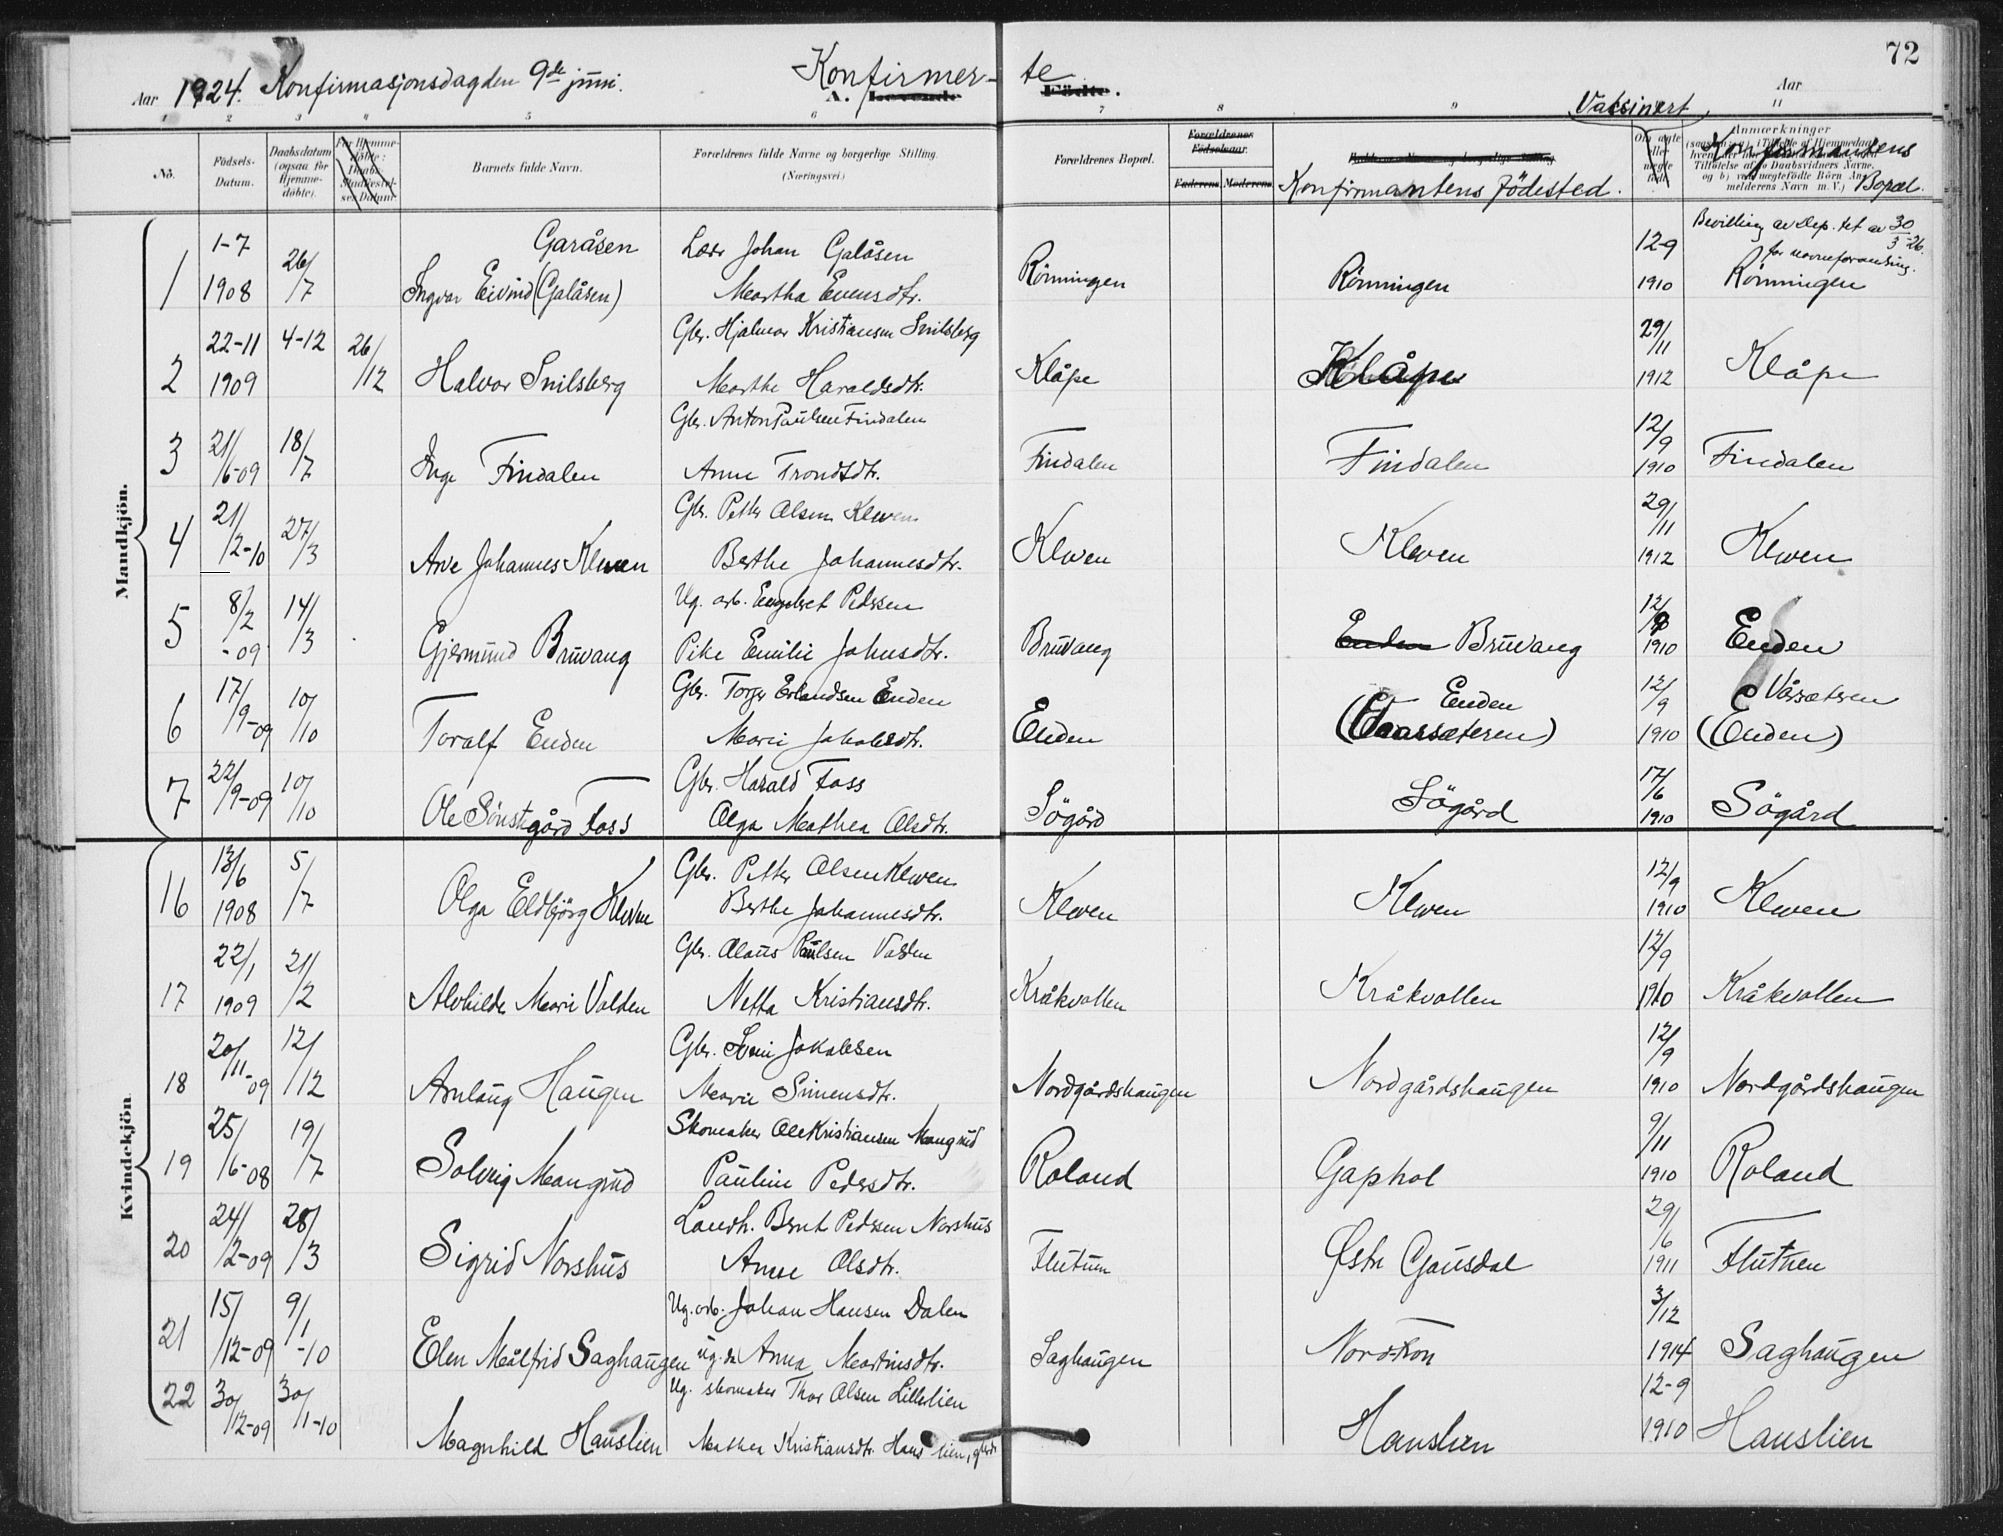 72
Aar 1924. Konfirmasjonsdag den 9de juni. Konfirmer- te
A. Levende Fødte.
Aar
Vaksinert
1 2 3 4 5 6 7 8 9 11
No. Födsels-Datum. Daabsdatum (ogsaa for Hjemme-döbte). Barnets fulde Navn. Forældrenes fulde Navne og borgerlige Stilling. (Næringsvei.) Forældrenes Bopæl. Forældrenes Födselsaar. Faderens Moderens Konfirmantens födested. Anmærkninger Konfirmantens Bopæl.
Mandkjön.
Bevilling av dep.tet av 30/3-26 for navneforandring.
1-7 Garåsen Lær Johan Galåsen 12-9
1 1908 26/7 Ingvar Eivind (Galåsen) Martha Evensdtr. Rönningen Rönningen 1910 Rönningen
22-11 4-12 26/12 Gbr. Hjalmar Kristiansen Snilsberg 29/11
2 1909 Halvor Snilsberg Marthe Haraldsdtr. Klåpe Klåpe 1912 Klåpe
Gbr. Anton Paulsen Findalen 12/9
3 21/6-09 18/7 Inge Findalen Anne Trondsdtr. Findalen Findalen 1910 Findalen
Gbr. Petter Olsen Kleven 29/11
4 21/2-10 27/3 Arve Johannes Kleven Berthe Johannesdtr. Kleven Kleven 1912 Kleven
Ug. arb. Engebret Pedersen 12/9
5 8/2-09 14/3 Gjermund Bruvang Pike Emilie Johnsdtr. Bruvang Enden Bruvang 1910 Enden
Gbr. Torger Erlandsen Enden Enden 12/9 Vårsæteren
6 17/9-09 10/10 Toralf Enden Marie Jakobsdtr. Enden (Vaarsæteren) 1910 (Enden)
Gbr. Harald Foss 17/6
7 22/9-09 10/10 Ole Sönstegård Foss Olga Mathea Olsdtr. Sögård Sögård 1910 Sögård
Kvindekjön.
13/6 5/7 Gbr. Petter Olsen Kleven 12/9
16 1908 Olga Eldbjörg Kleven Berthe Johannesdtr. Kleven Kleven 1910 Kleven
22/1 21/2 Gbr. Olaus Paulsen Valden 12/9
17 1909 Alvhilde Marie Valden Netta Kristiansdtr. Kråkvollen Kråkvollen 1910 Kråkvollen
Gbr. Jakobsen 12/9
18 20/11-09 12/12 Arnlaug Haugen Marie Simensdtr. Nordgårdshaugen Nordgårdshaugen 1910 Nordgårdshaugen
Skomaker Ole Kristiansen Mangrud 9/11
19 25/6-08 19/7 Solveig Mangrud Pauline Pedersdtr. Roland Gaphol 1910 Roland
Landh. Bernt Pedersen Norshus 29/6
20 24/2-09 28/3 Sigrid Norshus Anne Olsdtr. Flutum Østre Gausdal 1911 Fluthen
Ug. arb. Johan Hansen Dalen 3/12
21 15/12-09 9/1-10 Elen Målfrid Saghaugen ug. Anna Martinsdtr. Saghaugen Nordron 1914 Saghaugen
Ug. skomaker Thor Olsen Lillelien 12-9
22 30/12-09 30/1-10 Magnhild Hanslien Mathea Kristiansdtr. Hanslien, Hanslien 1910 Hanslien